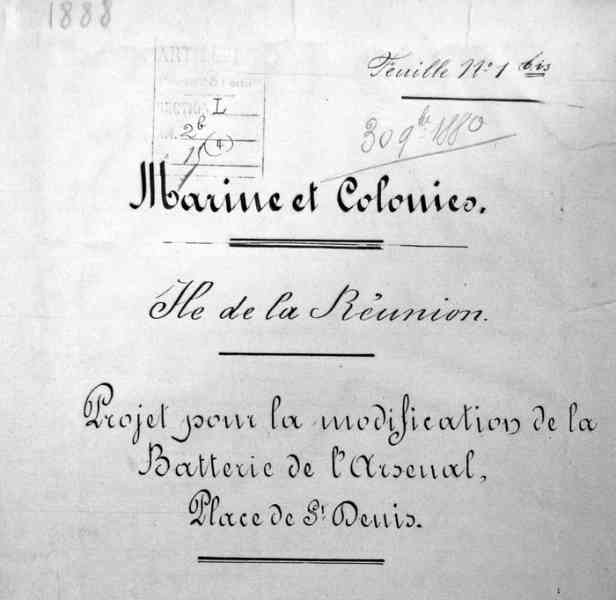 1888
Feuille No. 1 bis
L
2b
15 (4)
30 9bre 1880
Marine et Colonies.
Ile de la Réunion.
Projet pour la modification de la
Batterie de l'Arsenal,
Place de St Denis.